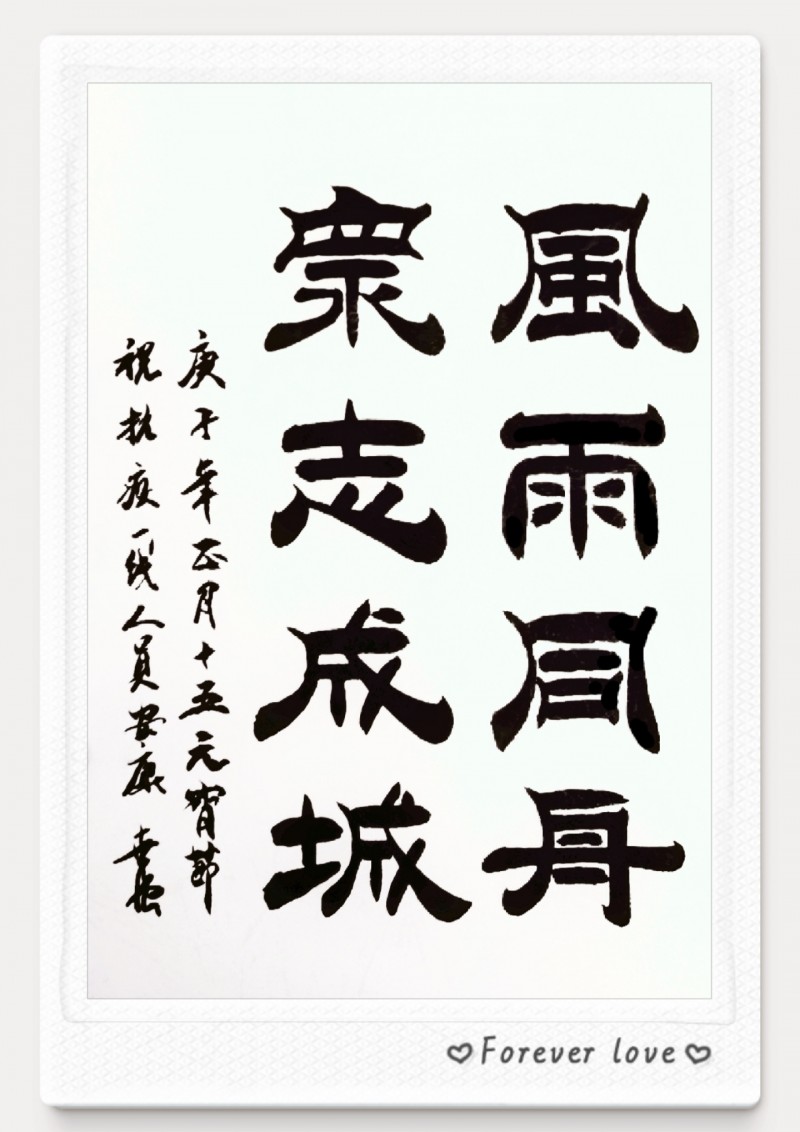 風雨同舟
眾志成城
庚子年正月十五元宵節
祝抗疫一线人員安康
♡Forever love♡